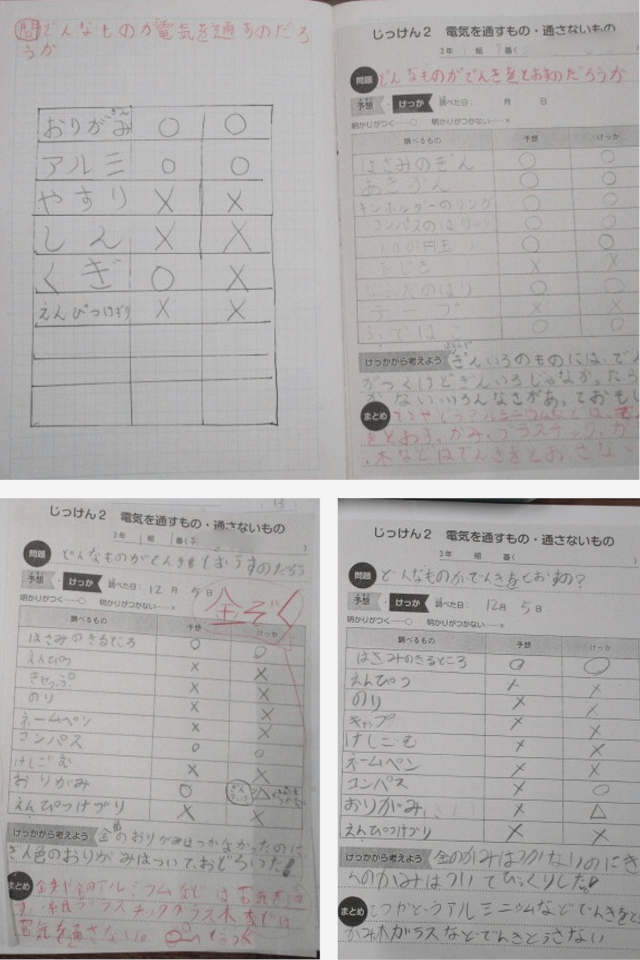 問 どんなものが電気を通すのだろ
うか
おりがみ ぎん ○ ○
アルミ ○ ○
やすり × ×
しん × ×
くぎ ○ ×
えんぴつけずり × ×
じっけん2 電気を通すもの・通さないもの
3年 組 番(
問題 どんなものがでんきをとおすのだろうか
予想・けっか 調べた日: 月 日
明かりがつく……○ 明かりがつかない……×
調べるもの 予想 けっか
はさみのぎん ○ ○
あきかん ○ ○
キーホルダーのリング ○ ○
コンパスのはり ○ ○
100円玉 ○ ○
× ×
○ ○
テープ × ×
ふでばこ ○ ○
けっかから考えよう ぎんいろのものには、でん
がつくけどぎんいろじゃなかったら
まとめ てつやどうアルミニウムなどは、
をとおす。かみ、プラスチック、
木などはでんきをとおさない
じっけん2 電気を通すもの・通さないもの
3年 1組 番(
問題 どんなものがでんきをとおすのだろう
予想・けっか 調べた日: 12月 5日
金ぞく
明かりがつく……○ 明かりがつかない……×
調べるもの 予想 けっか
はさみのきるところ ○ ○
えんぴつ × ×
きゃっぷ × ×
のり × ×
ネームペン × ×
コンパス ○ ○
けしごむ × ×
おりがみ ○ △
えんぴつけずり × ×
けっかから考えよう 金色のおりがみはつかなかったのに
ぎん色のおりがみはついておどろいた!
まとめ 鉄や銅アルミニウムなどは電気を通
す。紙プラスチックガラス木などは
電気を通さない。
じっけん2 電気を通すもの・通さないもの
3年 組 番( )
問題 どんなものがでんきをとおすの?
予想・けっか 調べた日: 12月 5日
明かりがつく……○ 明かりがつかない……×
調べるもの 予想 けっか
はさみのきるところ ○ ○
えんぴつ × ×
のり × ×
キャップ × ×
けしごむ × ×
ネームペン × ×
コンパス × ○
おりがみ × △
えんぴつけずり × ×
けっかから考えよう 金のかみはつかないのにぎ
んのかみはついてびっくりした!
まとめ てつがどうアルミニウムなどでんきをと
かみ木ガラスなどでんきとうさない